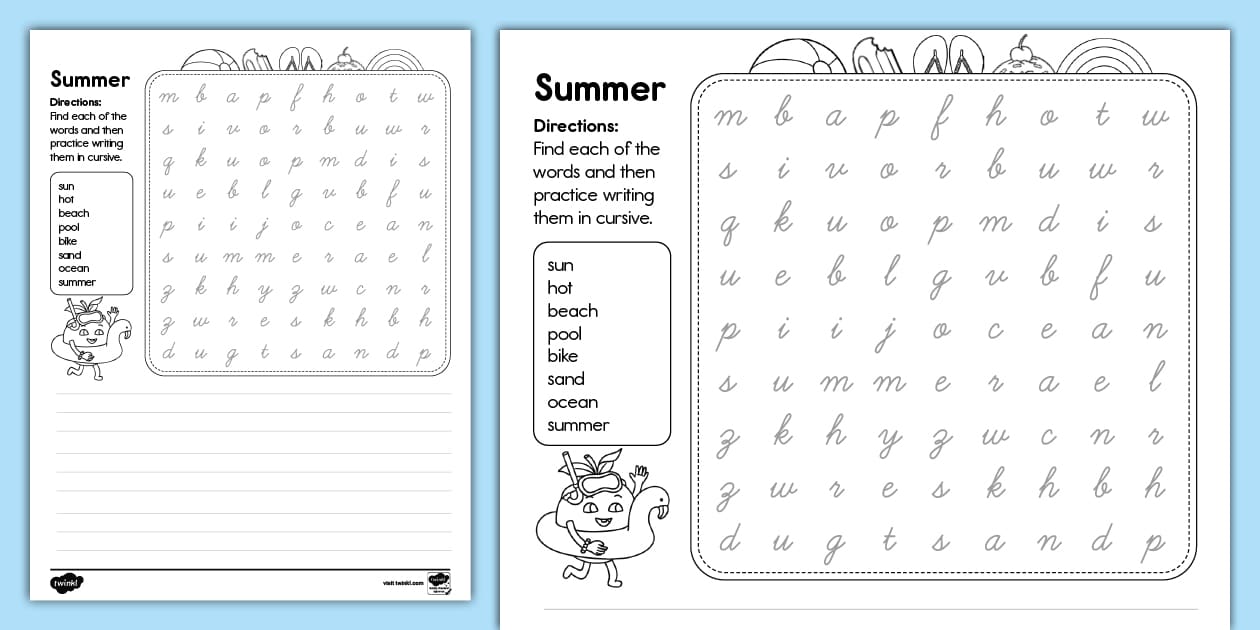 Summer
Directions:
Find each of the
words and then
practice writing
them in cursive.
sun
hot
beach
pool
bike
sand
ocean
summer
m b a p f h o t w
s i v o r b u w r
q k u o p m d i s
u e b l g v b f u
p i i j o c e a n
s u m m e r a e l
z k h y z w c n r
z w r e s k h b h
d u g t s a n d p
twinkl
visit twinkl.com
twinkl
Summer
Directions:
Find each of the
words and then
practice writing
them in cursive.
sun
hot
beach
pool
bike
sand
ocean
summer
m b a p f h o t w
s i v o r b u w r
q k u o p m d i s
u e b l g v b f u
p i i j o c e a n
s u m m e r a e l
z k h y z w c n r
z w r e s k h b h
d u g t s a n d p